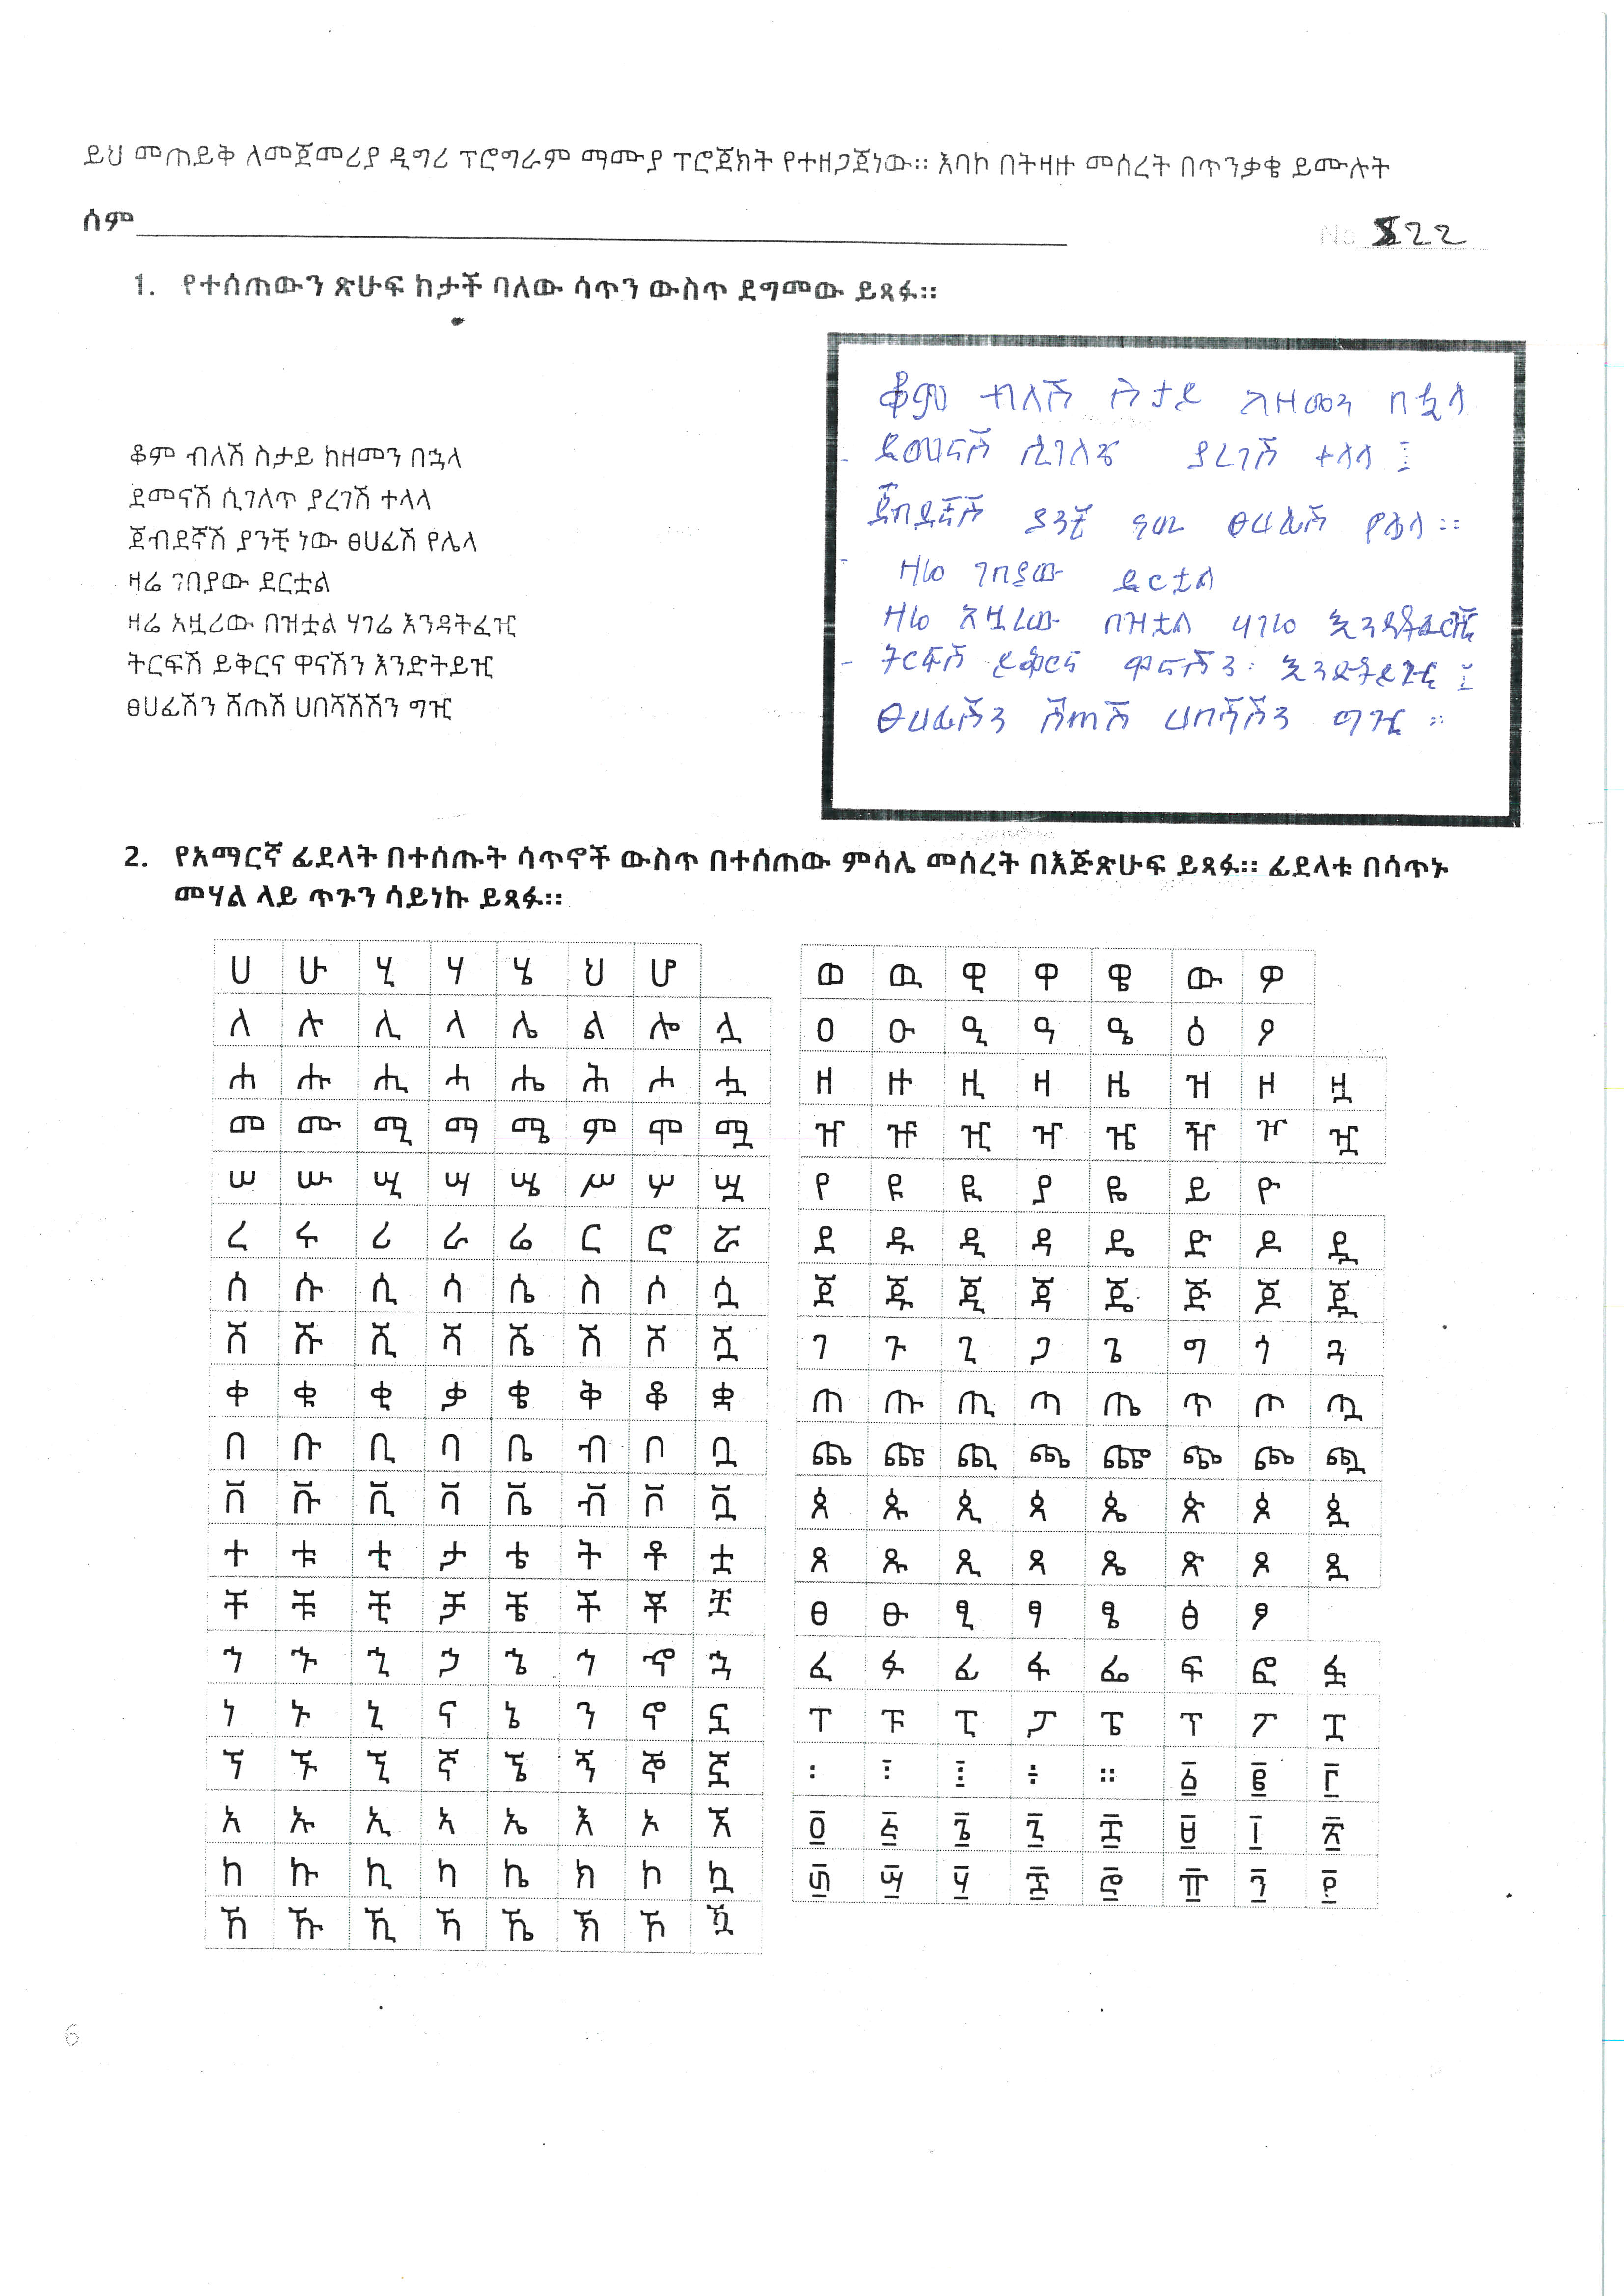 ይህ መጠይቅ ለመጀመሪያ ዲግሪ ፕሮግራም ማሙያ ፕሮጀክት የተዘጋጀነው። እባኮ በትዛዙ መሰረት በጥንቃቄ ይሙሉት
ስም
No 822
1. የተሰጠውን ጽሁፍ ከታች ባለው ሳጥን ውስጥ ደግመው ይጻፉ።
ቆም ብለሽ ስታይ ከዘመን በኋላ
ደመናሽ ሲገለጥ ያረገሽ ተላላ
ጀብደኛሽ ያንቺ ነው ፀሀፊሽ የሌላ
ዛሬ ገበያው ደርቷል
ዛሬ አዟሪው በዝቷል ሃገሬ እንዳትፈዢ
ትርፍሽ ይቅርና ዋናሽን እንድትይዢ
ፀሀፊሽን ሸጠሽ ሀበሻሽሽን ግዢ
ቆም ብለሽ ስታይ ከዘመን በኟላ
ደመናሽ ሲገለጭ ያረገሽ ተላላ ፤
ጀብደኛሽ ያንቺ ነው ፀሀፊሽ የሌላ ።
ዛሬ ገበያው ደርቷል
ዛሬ አዟሪው በዝቷል ሃገሬ እንዳትፈዢ
ትርፍሽ ይቅርና ዋናሽን እንድትይዢ ፤
ፀሀፊሽን ሸጠሽ ሀበሻሽን ግዢ ።
2. የአማርኛ ፊደላት በተሰጡት ሳጥኖች ውስጥ በተሰጠው ምሳሌ መሰረት በእጅጽሁፍ ይጻፉ። ፊደላቱ በሳጥኑ
መሃል ላይ ጥጉን ሳይነኩ ይጻፉ።
ሀ ሁ ሂ ሃ ሄ ህ ሆ
ለ ሉ ሊ ላ ሌ ል ሎ ሏ
ሐ ሑ ሒ ሓ ሔ ሕ ሖ ሗ
መ ሙ ሚ ማ ሜ ም ሞ ሟ
ሠ ሡ ሢ ሣ ሤ ሥ ሦ ሧ
ረ ሩ ሪ ራ ሬ ር ሮ ሯ
ሰ ሱ ሲ ሳ ሴ ስ ሶ ሷ
ሸ ሹ ሺ ሻ ሼ ሽ ሾ ሿ
ቀ ቁ ቂ ቃ ቄ ቅ ቆ ቋ
በ ቡ ቢ ባ ቤ ብ ቦ ቧ
ቨ ቩ ቪ ቫ ቬ ቭ ቮ ቯ
ተ ቱ ቲ ታ ቴ ት ቶ ቷ
ቸ ቹ ቺ ቻ ቼ ች ቾ ቿ
ኀ ኁ ኂ ኃ ኄ ኅ ኆ ኋ
ነ ኑ ኒ ና ኔ ን ኖ ኗ
ኘ ኙ ኚ ኛ ኜ ኝ ኞ ኟ
አ ኡ ኢ ኣ ኤ እ ኦ ኧ
ከ ኩ ኪ ካ ኬ ክ ኮ ኳ
ኸ ኹ ኺ ኻ ኼ ኽ ኾ ዃ
ወ ዉ ዊ ዋ ዌ ው ዎ
ዐ ዑ ዒ ዓ ዔ ዕ ዖ
ዘ ዙ ዚ ዛ ዜ ዝ ዞ ዟ
ዠ ዡ ዢ ዣ ዤ ዥ ዦ ዧ
የ ዩ ዪ ያ ዬ ይ ዮ
ደ ዱ ዲ ዳ ዴ ድ ዶ ዷ
ጀ ጁ ጂ ጃ ጄ ጅ ጆ ጇ
ገ ጉ ጊ ጋ ጌ ግ ጎ ጓ
ጠ ጡ ጢ ጣ ጤ ጥ ጦ ጧ
ጨ ጩ ጪ ጫ ጬ ጭ ጮ ጯ
ጰ ጱ ጲ ጳ ጴ ጵ ጶ ጷ
ጸ ጹ ጺ ጻ ጼ ጽ ጾ ጿ
ፀ ፁ ፂ ፃ ፄ ፅ ፆ
ፈ ፉ ፊ ፋ ፌ ፍ ፎ ፏ
ፐ ፑ ፒ ፓ ፔ ፕ ፖ ፗ
፡ ፤ ፧ ፥ ። ፩ ፪ ፫
፬ ፭ ፮ ፯ ፰ ፱ ፲ ፳
፴ ፵ ፶ ፷ ፸ ፹ ፺ ፻
6